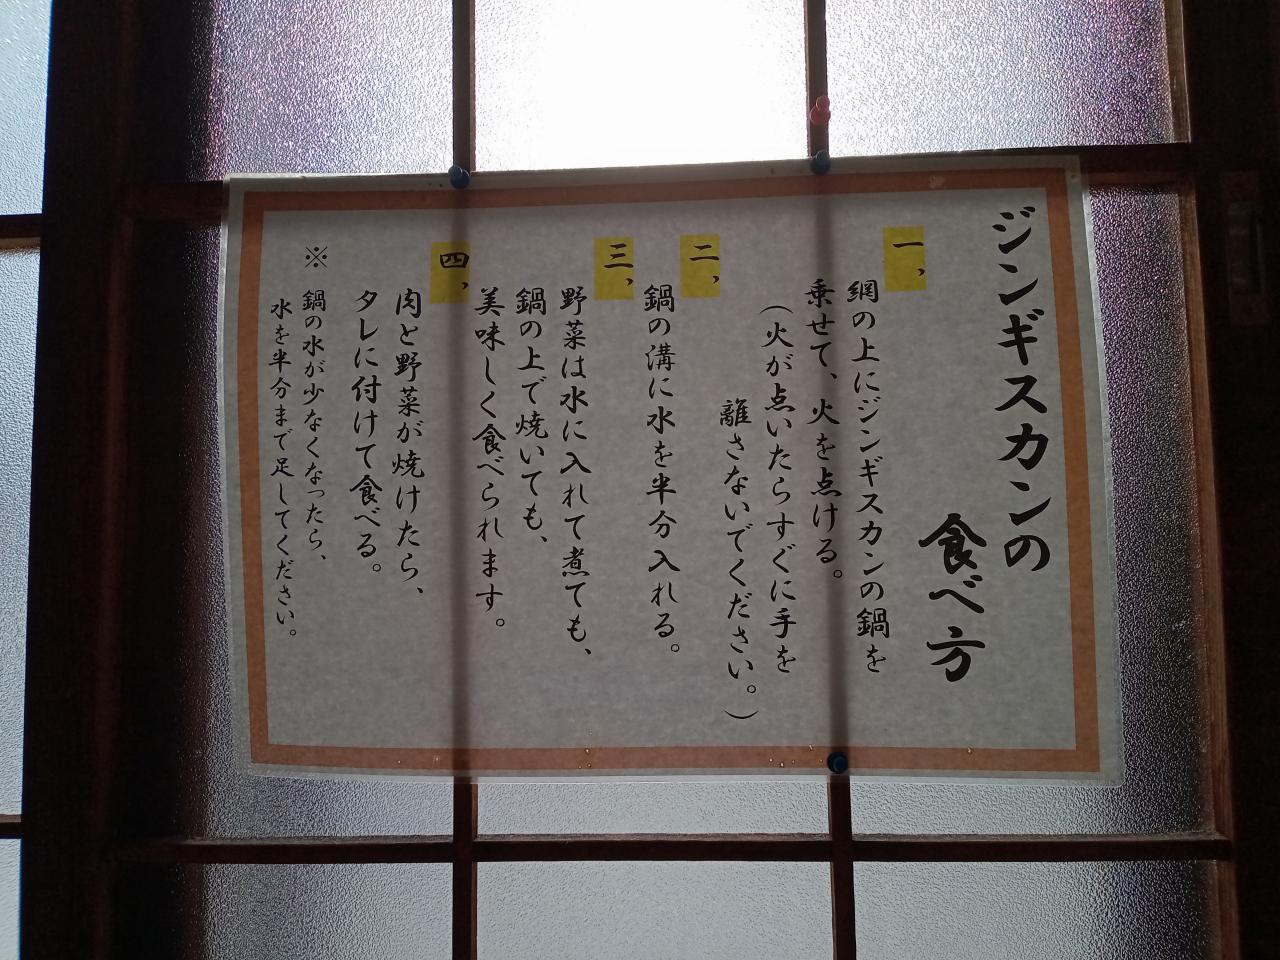 ジンギスカンの
食べ方
一、
網の上にジンギスカンの鍋を
乗せて、火を点ける。
（火が点いたらすぐに手を
離さないでください。）
二、
鍋の溝に水を半分入れる。
三、
野菜は水に入れて煮ても、
鍋の上で焼いても、
美味しく食べられます。
四、
肉と野菜が焼けたら、
タレに付けて食べる。
※
鍋の水が少なくなったら、
水を半分まで足してください。